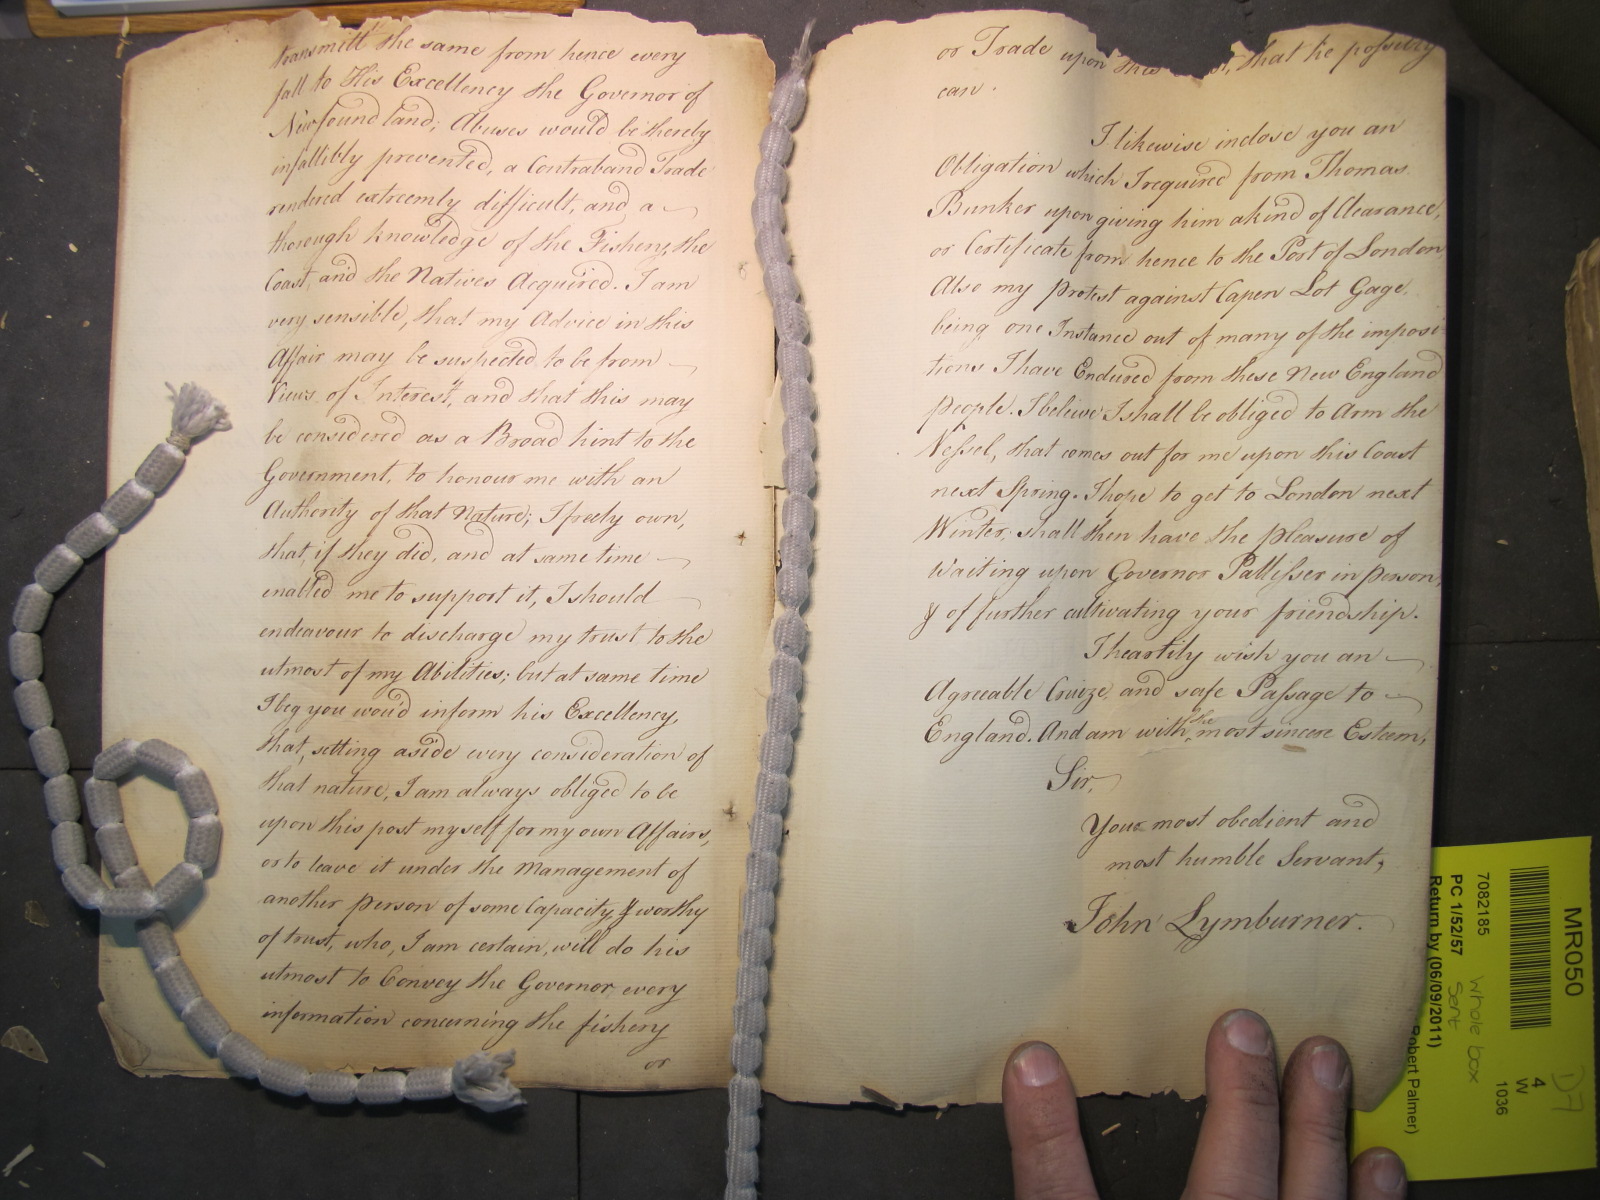 transmitt the same from hence every
fall to His Excellency the Governor of
Newfoundland; Abuses would be thereby
infallibly prevented, a Contraband Trade
rendered extreemly difficult, and a
thorough knowledge of the Fishery, the
Coast, and the Natives Acquired. I am
very sensible, that my Advice in this
Affair may be suspected to be from
Views of Interest, and that this may
be considered as a Broad hint to the
Government, to honour me with an
Authority of that Nature; I freely own,
that, if they did, and at same time
enabled me to support it, I should
endeavour to discharge my trust to the
utmost of my Abilities; but at same time
I beg you wou'd inform his Excellency,
that, setting aside every consideration of
that nature, I am always obliged to be
upon this post myself for my own Affairs,
or to leave it under the Management of
another person of some Capacity, & worthy
of trust, who, I am certain, will do his
utmost to Convey the Governor every
information concerning the fishery
or
or Trade upon this that he possibly
can.
I likewise inclose you an
Obligation which I required from Thomas
Bunker upon giving him a kind of Clearance,
or Certificate from hence to the Port of London
Also my Protest against Capen Lot Gage,
being one Instance out of many of the imposi
tions I have Endured from these New England
people. I believe I shall be obliged to Arm the
Vessel, that comes out for me upon this Coast
next Spring. I hope to get to London next
Winter; shall then have the pleasure of
Waiting upon Governor Pallisser in person,
& of further cultivating your friendship.
I heartily wish you an
Agreeable Cruize, and safe Passage to
England. And am with the most sincere Esteem,
Sir,
Your most obedient and
most humble Servant,
John Lymburner.
MR050
7082185
PC 1/52/57
Return by (06/09/2011)
Robert Palmer)
whole box
Sent
4
W
1036
D7